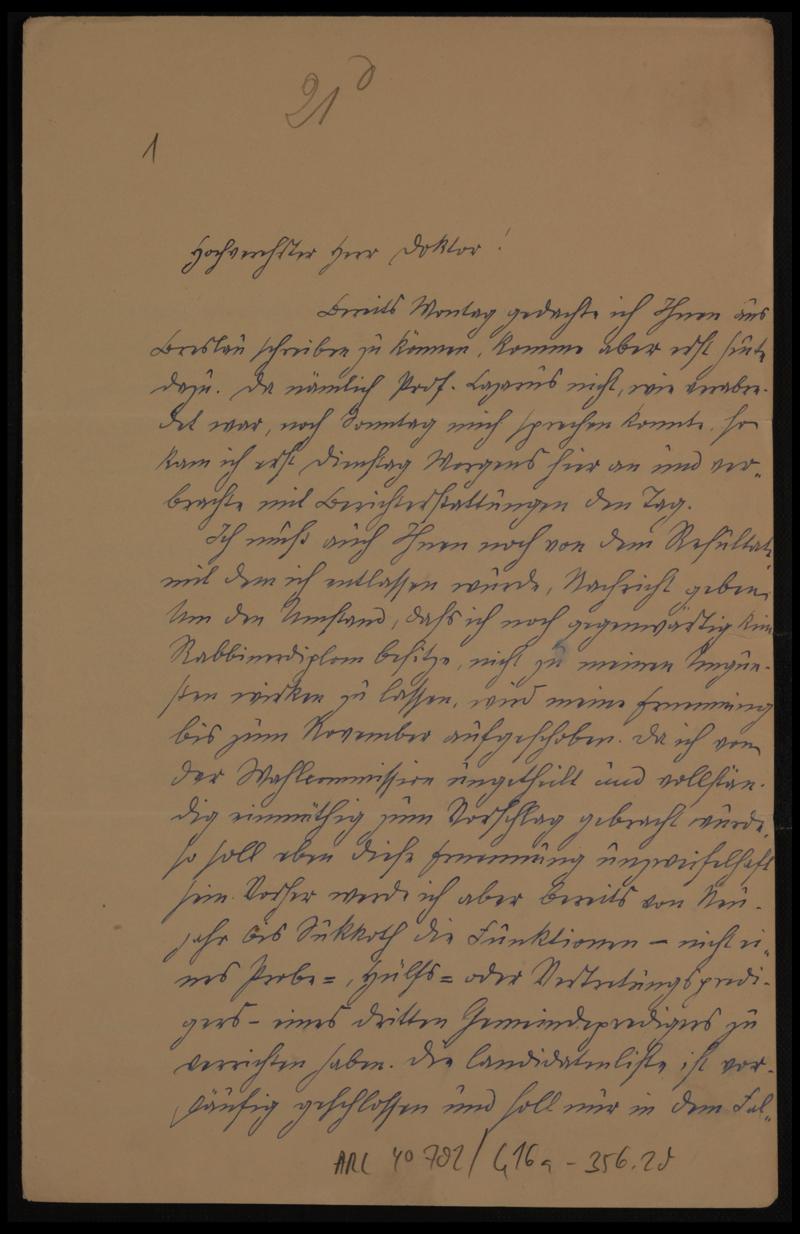 21d
1
Hochverehrter Herr Doktor!
Bereits Montag gedachte ich Ihnen aus
Breslau schreiben zu können, komme aber erst heute
dazu. Da nämlich Prof. Lazarus nicht, wie verabre-
det war, noch Sonntag mich sprechen konnte, so
kam ich erst Dienstag Morgens hier an und ver-
brachte mit Berichterstattungen den Tag.
Ich muß auch Ihnen noch von dem Resultat,
mit dem ich entlassen wurde, Nachricht geben.
Um den Umstand, daß ich noch gegenwärtig kein
Rabbinerdiplom besitze, nicht zu meinen Ungun-
sten wirken zu lassen, wird meine Ernennung
bis zum November aufgeschoben. Da ich von
der Wahlcommission ungetheilt und vollstän-
dig einmüthig zum Vorschlag gebracht wurde,
so soll eben diese Ernennung unzweifelhaft
sein. Vorher werde ich aber bereits von Neu-
jahr bis Sukkoth die Funktionen – nicht ei-
nes Probe=, Hülfs= oder Vertretungspredi-
gers – eines dritten Gemeindepredigers zu
verrichten haben. Die Candidatenliste ist vor-
läufig geschlossen und soll nur in dem Fal-
ARC 4o 792/G16a-356.2d